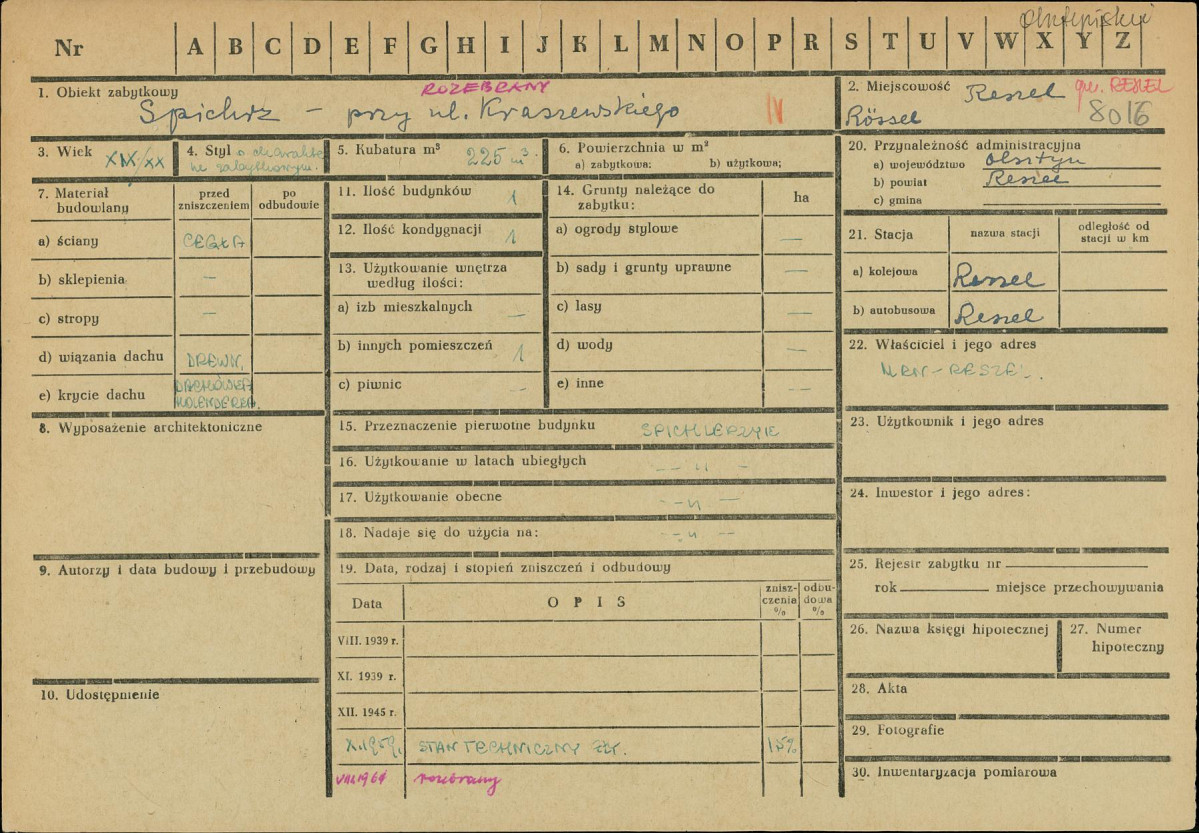 Olsztyński
Nr A B C D E F G H I J K L M N O P R S T U V W X Y Z
1. Obiekt zabytkowy ROZEBRANY
Spichrz – przy ul. Kraszewskiego IV
2. Miejscowość Reszel gm. RESZEL
Rössel 8016
3. Wiek XIX/XX
4. Styl o charakte
nie zabytkowym.
5. Kubatura m³ 225 m³.
6. Powierzchnia w m²
a) zabytkowa: b) użytkowa;
20. Przynależność administracyjna
a) województwo Olsztyn
b) powiat Reszel
c) gmina
7. Materiał budowlany
przed zniszczeniem
po odbudowie
a) ściany CEGŁA
b) sklepienia –
c) stropy –
d) wiązania dachu DREWN.
e) krycie dachu DACHÓWKA
HOLENDERK.
8. Wyposażenie architektoniczne
9. Autorzy i data budowy i przebudowy
10. Udostępnienie
11. Ilość budynków 1
12. Ilość kondygnacji 1
13. Użytkowanie wnętrza
według ilości:
a) izb mieszkalnych –
b) innych pomieszczeń 1
c) piwnic –
14. Grunty należące do
zabytku: ha
a) ogrody stylowe –
b) sady i grunty uprawne –
c) lasy –
d) wody –
e) inne –
15. Przeznaczenie pierwotne budynku
16. Użytkowanie w latach ubiegłych – – „ –
17. Użytkowanie obecne – „ –
18. Nadaje się do użycia na: – „ –
19. Data, rodzaj i stopień zniszczeń i odbudowy
Data OPIS znisz-
czenia
%
odbu-
dowa
%
VIII. 1939 r.
XI. 1939 r.
XII. 1945 r.
X.1959. STAN TECHNICZNY ZŁY. 15%
VIII 1964 rozebrany
21. Stacja nazwa stacji odległość od
stacji w km
a) kolejowa Reszel
b) autobusowa Reszel
22. Właściciel i jego adres
MRN – RESZEL.
23. Użytkownik i jego adres
24. Inwestor i jego adres:
25. Rejestr zabytku nr
rok miejsce przechowywania
26. Nazwa księgi hipotecznej
27. Numer
hipoteczny
28. Akta
29. Fotografie
30. Inwentaryzacja pomiarowa